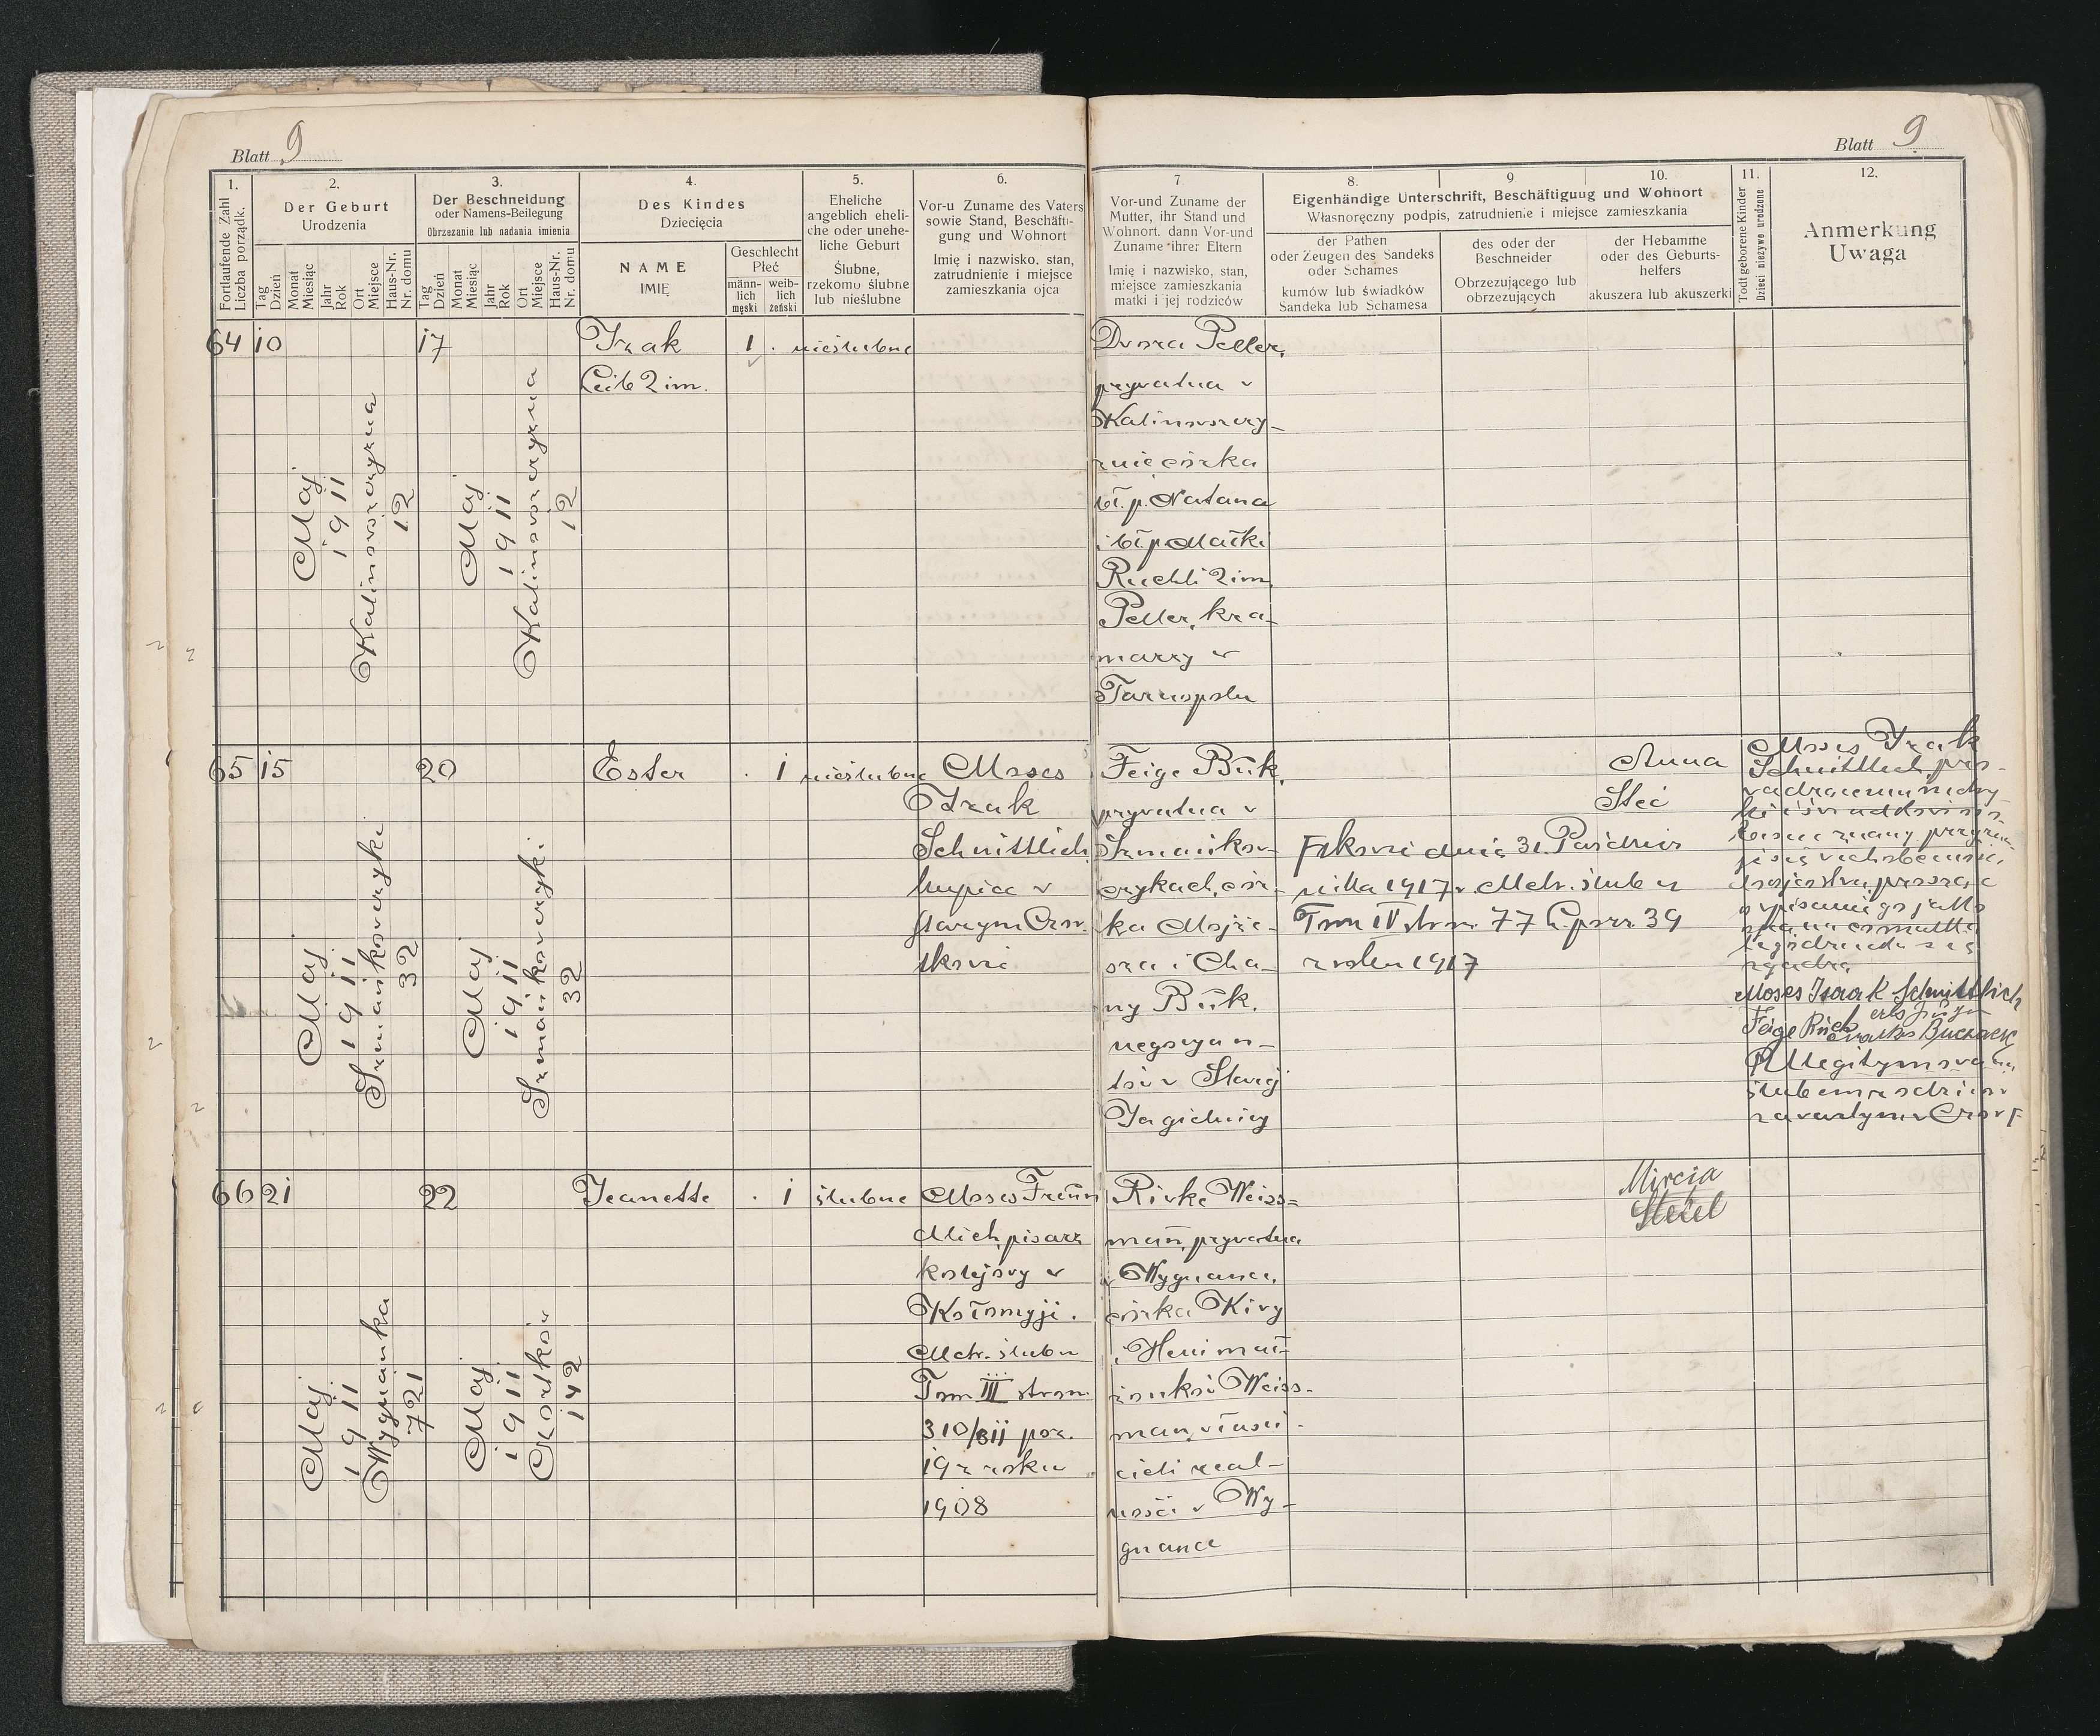 Blatt 9
Blatt 9
1.
Fortlaufende Zahl
Liczba porządk.
2.
Der Geburt
Urodzenia
Tag
Dzień
Monat
Miesiąc
Jahr
Rok
Ort
Miejsce
Haus-Nr.
Nr. domu
3.
Der Beschneidung
oder Namens-Beilegung
Obrzezanie lub nadania imienia
Tag
Dzień
Monat
Miesiąc
Jahr
Rok
Ort
Miejsce
Haus-Nr.
Nr. domu
4.
Des Kindes
Dziecięcia
NAME
IMIĘ
Geschlecht
Płeć
männ-
lich
męski
weib-
lich
żeński
5.
Eheliche
angeblich eheli-
che oder unehe-
liche Geburt
Ślubne,
rzekomo ślubne
lub nieślubne
6.
Vor-u Zuname des Vaters
sowie Stand, Beschäfti-
gung und Wohnort
Imię i nazwisko, stan,
zatrudnienie i miejsce
zamieszkania ojca
7
Vor-und Zuname der
Mutter, ihr Stand und
Wohnort. dann Vor-und
Zuname ihrer Eltern
Imię i nazwisko, stan,
miejsce zamieszkania
matki i jej rodziców
8.
9
10.
Eigenhändige Unterschrift, Beschäftiguug und Wohnort
Własnoręczny podpis, zatrudnienie i miejsce zamieszkania
der Pathen
oder Zeugen des Sandeks
oder Schames
kumów lub świadków
Sandeka lub Schamesa
des oder der
Beschneider
Obrzezującego lub
obrzezujących
der Hebamme
oder des Geburts-
helfers
akuszera lub akuszerki
11.
Todt geborene Kinder
Dzieci nieżywo urodzone
12.
Anmerkung
Uwaga
64
10
Maj
1911
Kalinowszczyzna
12
17
Maj
1911
Kalinowszczyzna
12
Izak
Leib 2 im.
1 .
nieślubne
Dwora Peller,
prywatna w
Kalinowszczy-
znie córka
bł. p. Natana
i bł. p. Małki
Ruchli 2 im.
Peller, kra-
marzy w
Tarnopolu
65
15
Maj
1911
Szmańkowczyki
32
20
Maj
1911
Szmańkowczyki
32
Ester
. 1
nieślubne
Moses
Izak
Schnittlich
kupiec w
starym Czor-
tkowie
Feige Bük,
prywatna w
Szmańkow-
czykach, cór-
ka Mojże-
sza i Cha-
ny Bük.
negocyan-
tów w Starej
Jagielnicy
Ftkowie dnia 31. Paździer
nika 1917 r. Metr. ślub u
Tom IV stron. 77 L. porz. 39
z roku 1917
Anna
Steć
Moses Izak
Schnittlich, pro-
ojcostwa, prosząc
o wpisanie go jako
ojca na co matka
zgadza
Moses Isaak Schnittlich
Feige Bück
legitymowana
ślubem rodziców
zawartym w Czort
66
21
Maj
1911
Wygnanka
721
22
Maj
1911
Czortków
142
Jeanette
. 1
ślubne
Moses Freün
dlich, pisarz
kolejowy w
Kołomyji.
Metr. ślubu
Tom III stron.
310/311 poz.
19 z roku
1908
Rivke Weiss=
man, prywatna
w Wygnance,
córka Kivy
i Heni mał-
żonków Weiss-
man, właści-
cieli real-
ności w Wy-
gnance
Mircia
Steiel